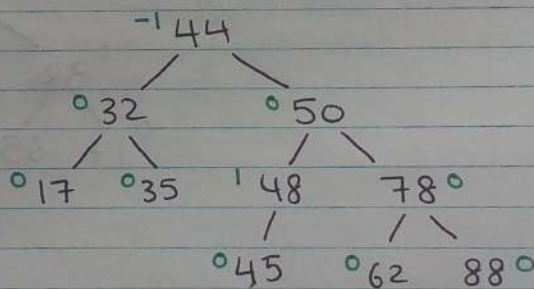 -1 44
0 32 0 50
0 17 0 35 1 48 78 0
0 45 0 62 88 0